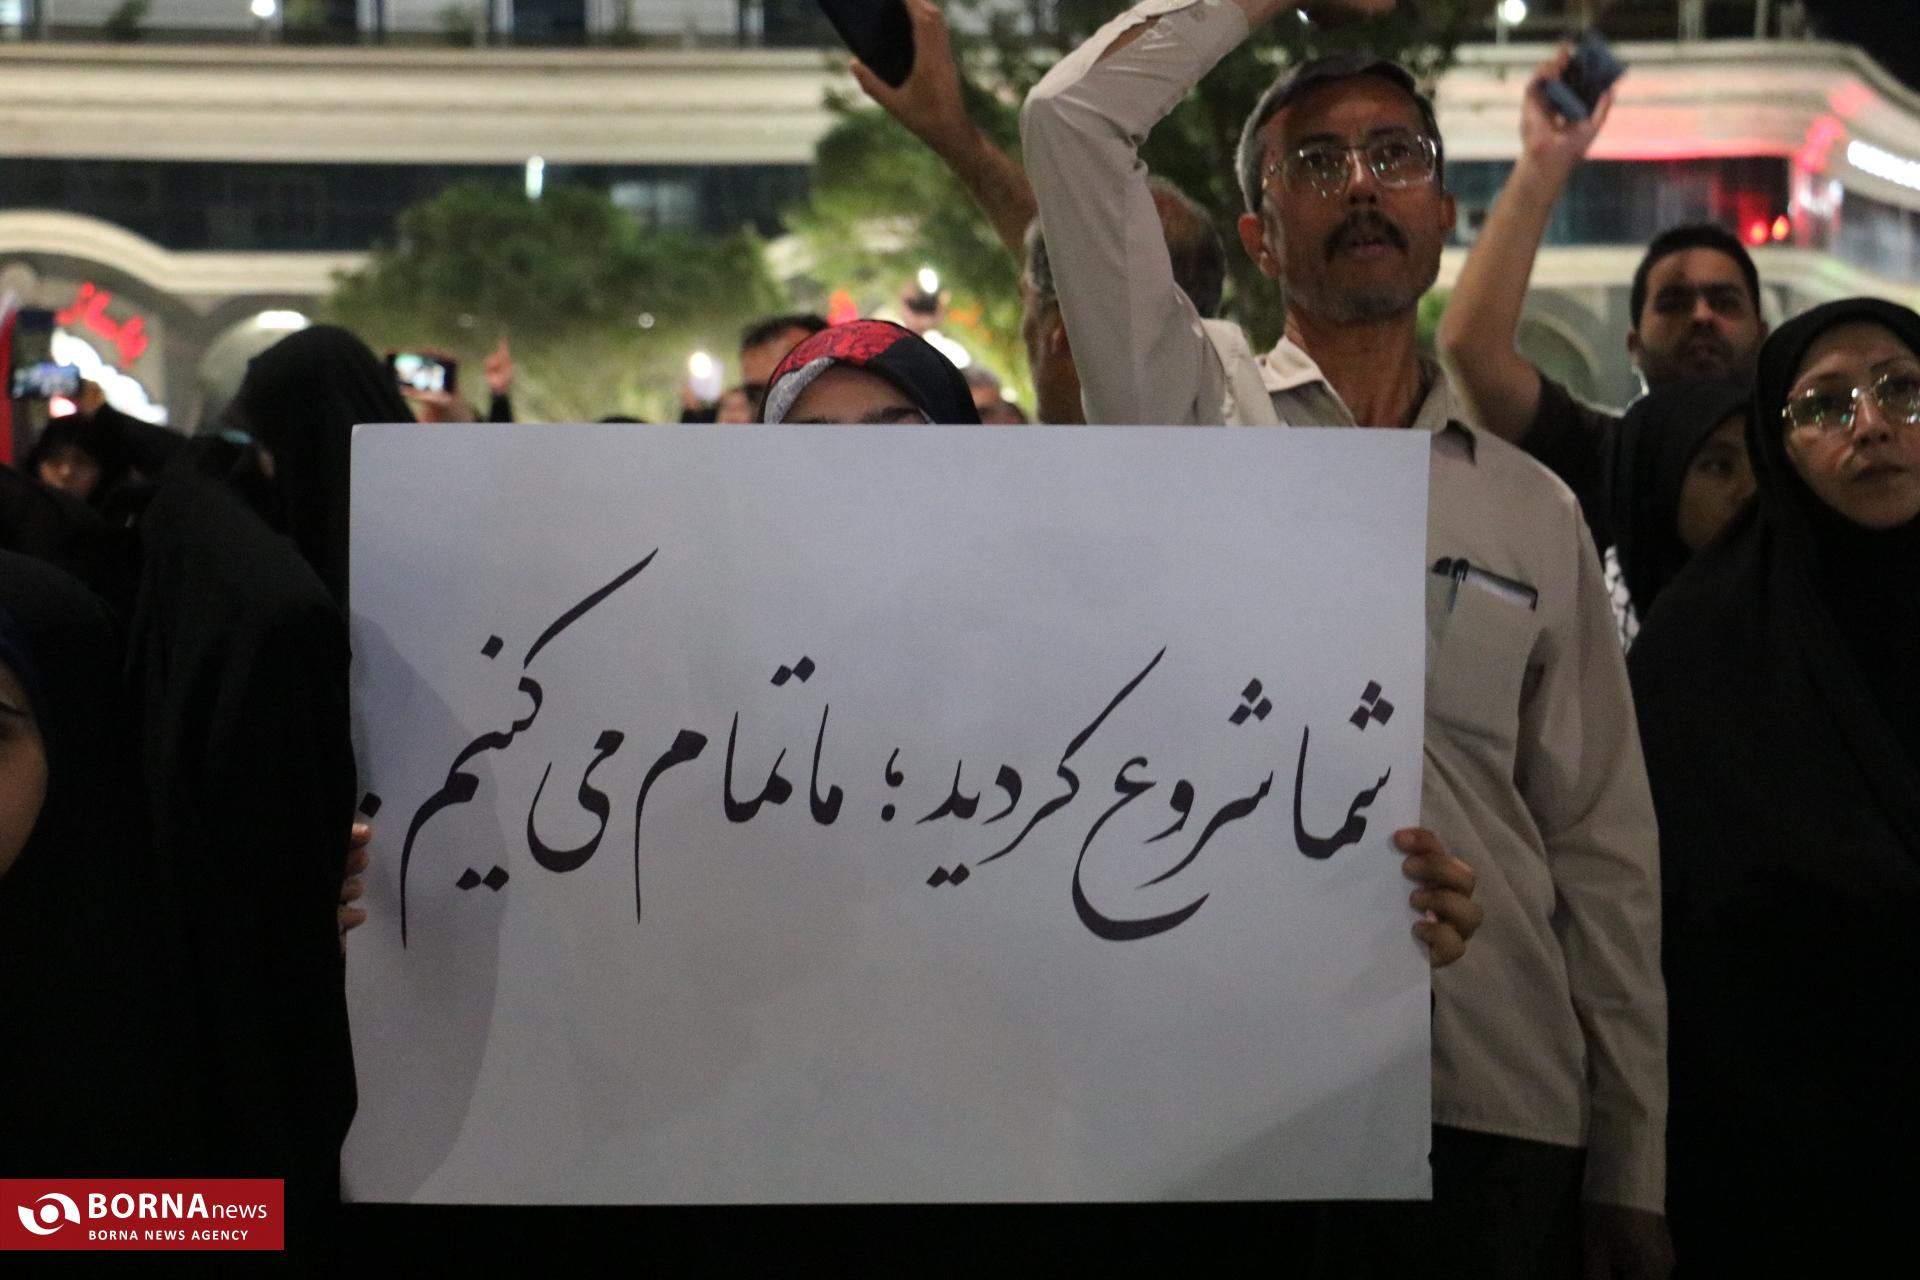 شما شروع کردید؛ ما تمام می کنیم.
BORNAnews
BORNA NEWS AGENCY